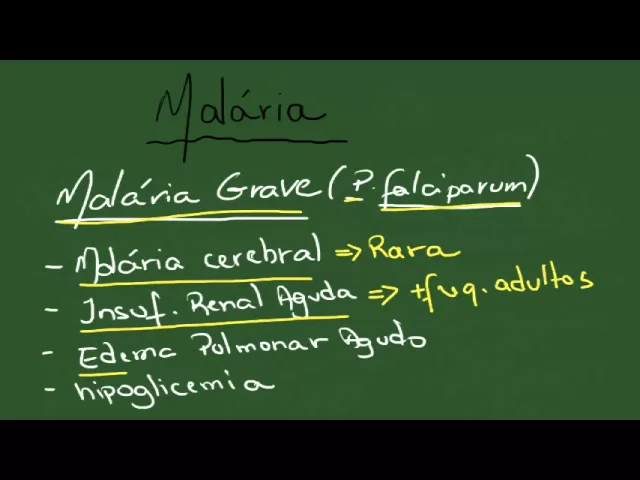 Malária
Malária Grave (P. falciparum)
- Malária cerebral => Rara
- Insuf. Renal Aguda => + fuq. adultos
- Edema Pulmonar Agudo
- hipoglicemia